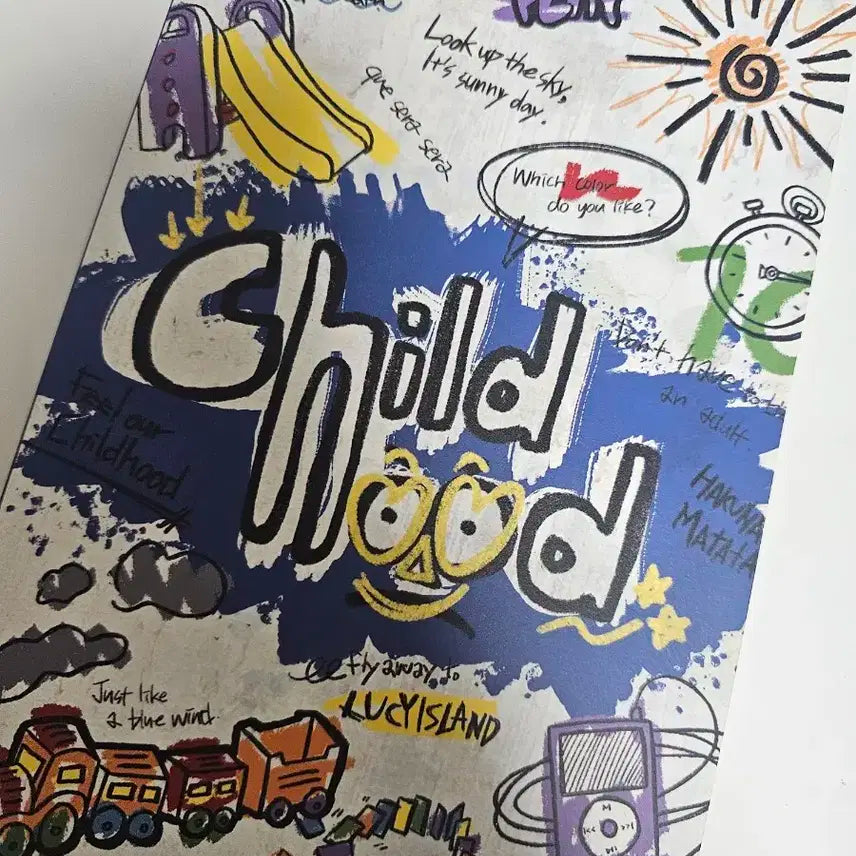 PLAN
Look up the sky,
It's sunny day.
que sera sera
Which color
do you like?
Child
hood
Don't have
an adult
Feel our
Childhood
HAKUNA
MATATA
fly away to
LUCY ISLAND
Just like
a blue wind